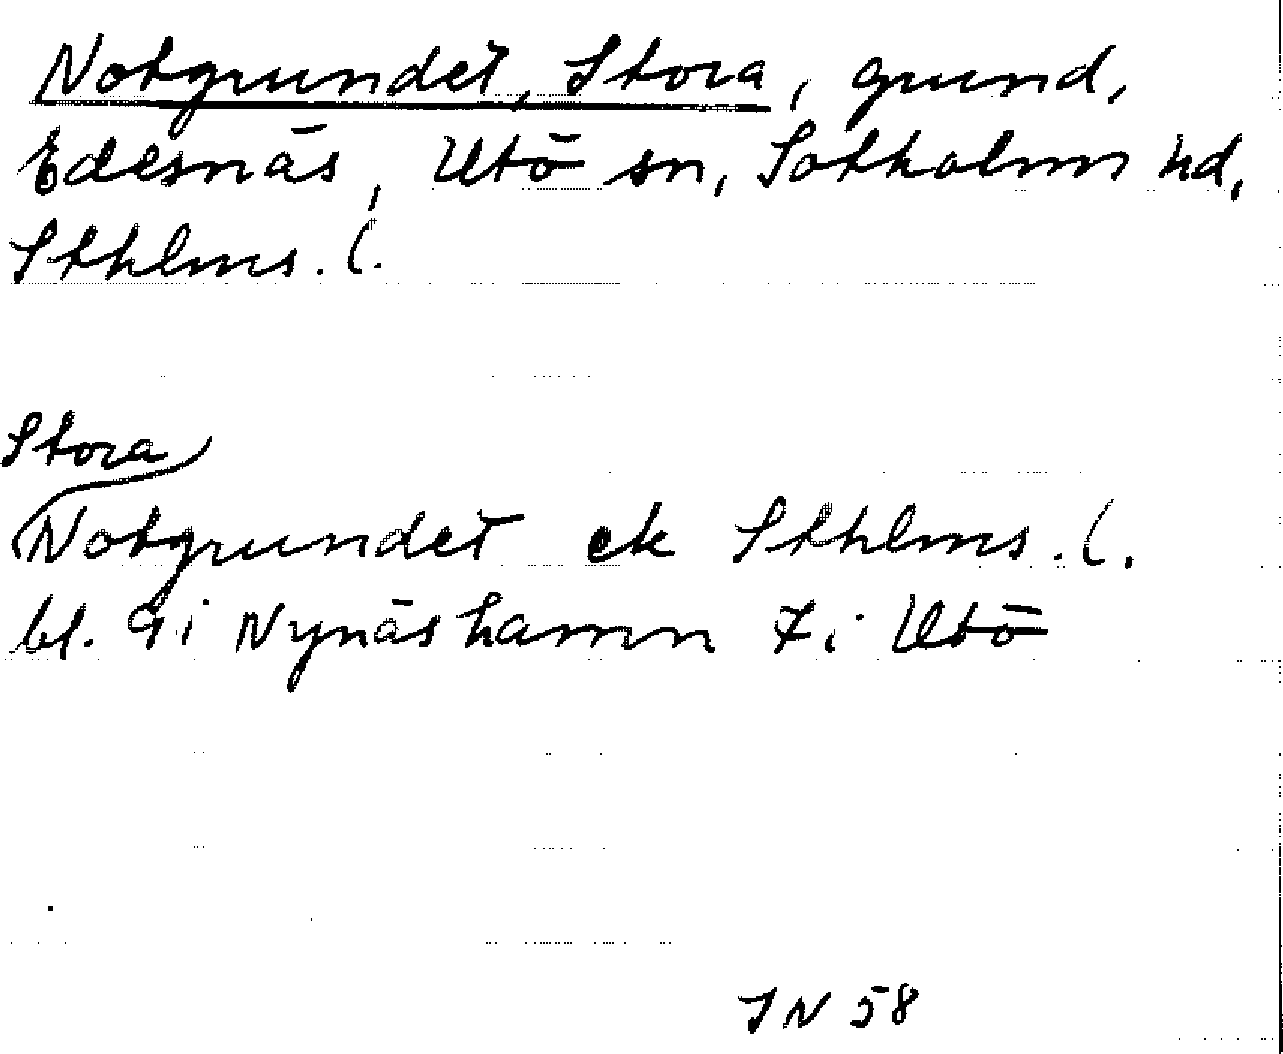 Notgrundet, Stora, grund,
Edesnäs, Utö sn, Sotholms hd,
Sthlms. l.
Stora
Notgrundet ek Sthlms. l.
bl. 9 i Nynäshamn 7 i Utö
IN 58